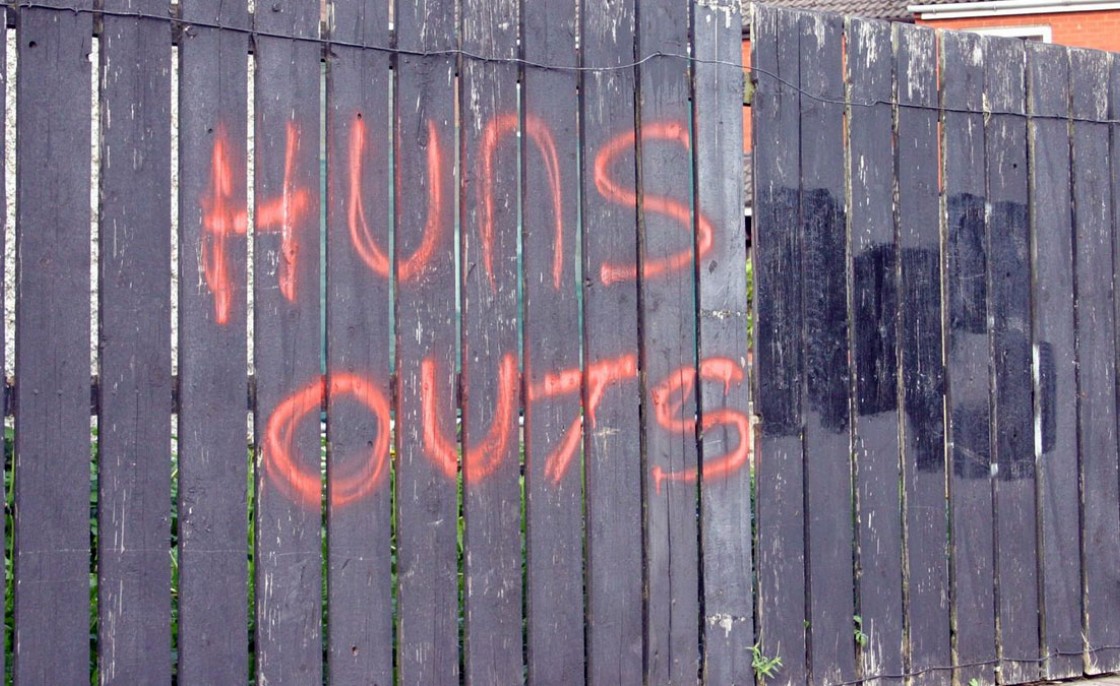 HUNS
OUTS